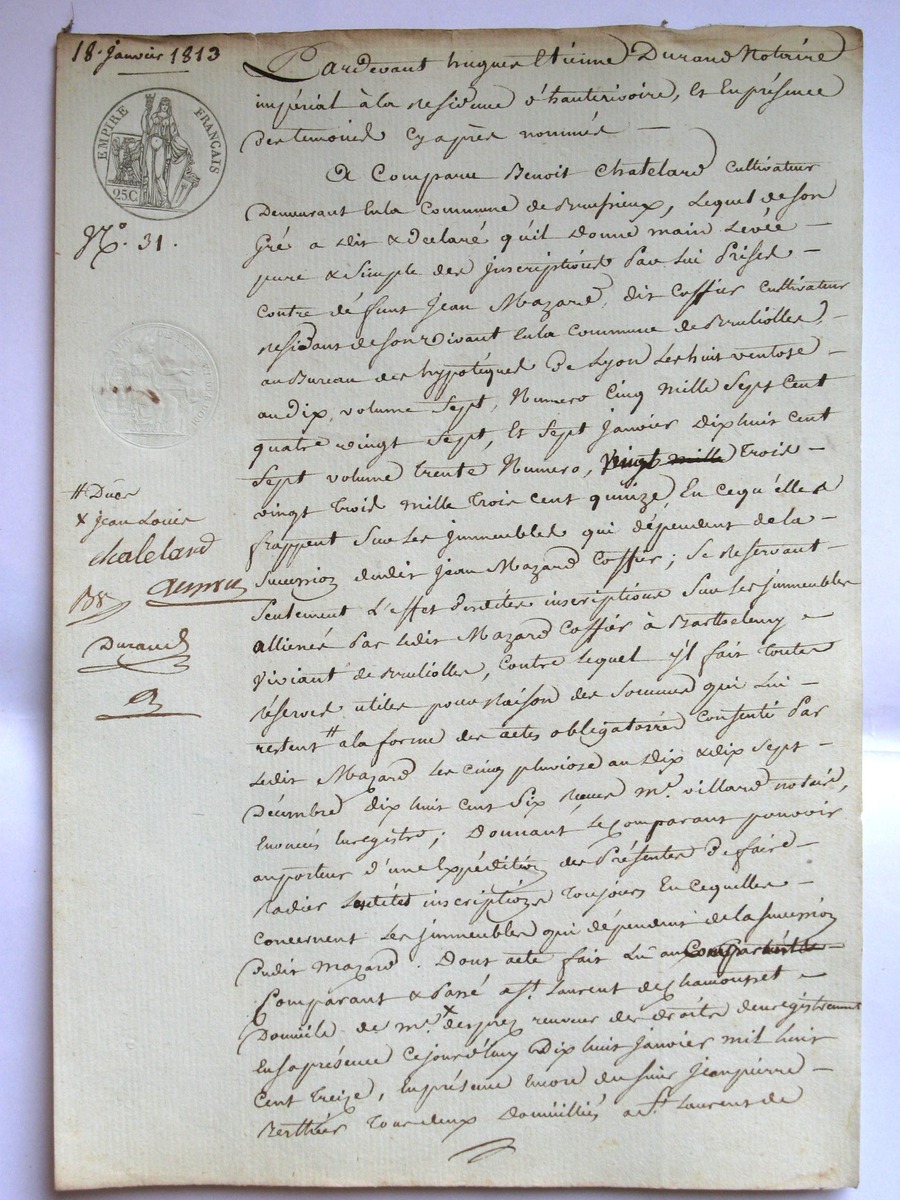 18. janvier 1813
EMPIRE FRANÇAIS
25C
N°. 31.
Pardevant hugues Etienne Durand Notaire
impérial à la residence d'hauterivoire, Et En présence
des temoins cy après nommés —
A Comparu Benoit Chatelard cultivateur
Demeurant En la Commune de Brussieux, Lequel de son
Gré a dit & declaré qu'il donne main Levée —
pure & simple des inscriptions Par lui Prises —
contre défunt Jean Mazard, dit Coffier cultivateur
residant de son vivant En la commune de Brulliolles, —
au Bureau des hypotéques de Lyon Les huit ventose —
an dix, volume Sept, Numero Cinq mille Sept Cent
quatre vingt Sept, Et Sept janvier dix huit cent
Sept volume trente Numero, vingt mille trois —
vingt trois mille trois cent quinze, En ce qu'elles
frappent Sur Les immeubles qui dépendent de la —
Sucession dudit jean Mazard Coffier; Se Reservant —
Seulement L'effet desdites inscriptions Sur Les immeubles
alliénés Par Ledit Mazard Coffier à Barthelemy —
Viviant de Brulliolles, Contre Lequel il fait toutes
réserves utiles pour Raison des Sommes qui Lui —
restent # a la forme des actes obligatoires Consentis Par
Ledit Mazard Les Cinq pluviose an dix & dix Sept —
Décembre dix huit cent Six Reçus M.e villard notaire,
Enregistrés; Donnant Le Comparant pouvoir
au porteur d'une Expédition des Présentes De faire —
radier Lesdites inscriptions toujours En ce quelles —
Concernent Les immeubles qui dépendent de la Sucession
Dudit Mazard. Dont acte fait Lu au Comparant
Comparant & Passé a St. Laurent de Chamousset —
Domicile de M.r x desprez receveur des droits denregistrement
En sa présence Ce jourd'huy Dix huit janvier mil huit
Cent treize, En présence Encore du Sieur Jean pierre —
tous deux Domiciliés a St. Laurent de
# Dües
x jean Louis
chatelard
Durand